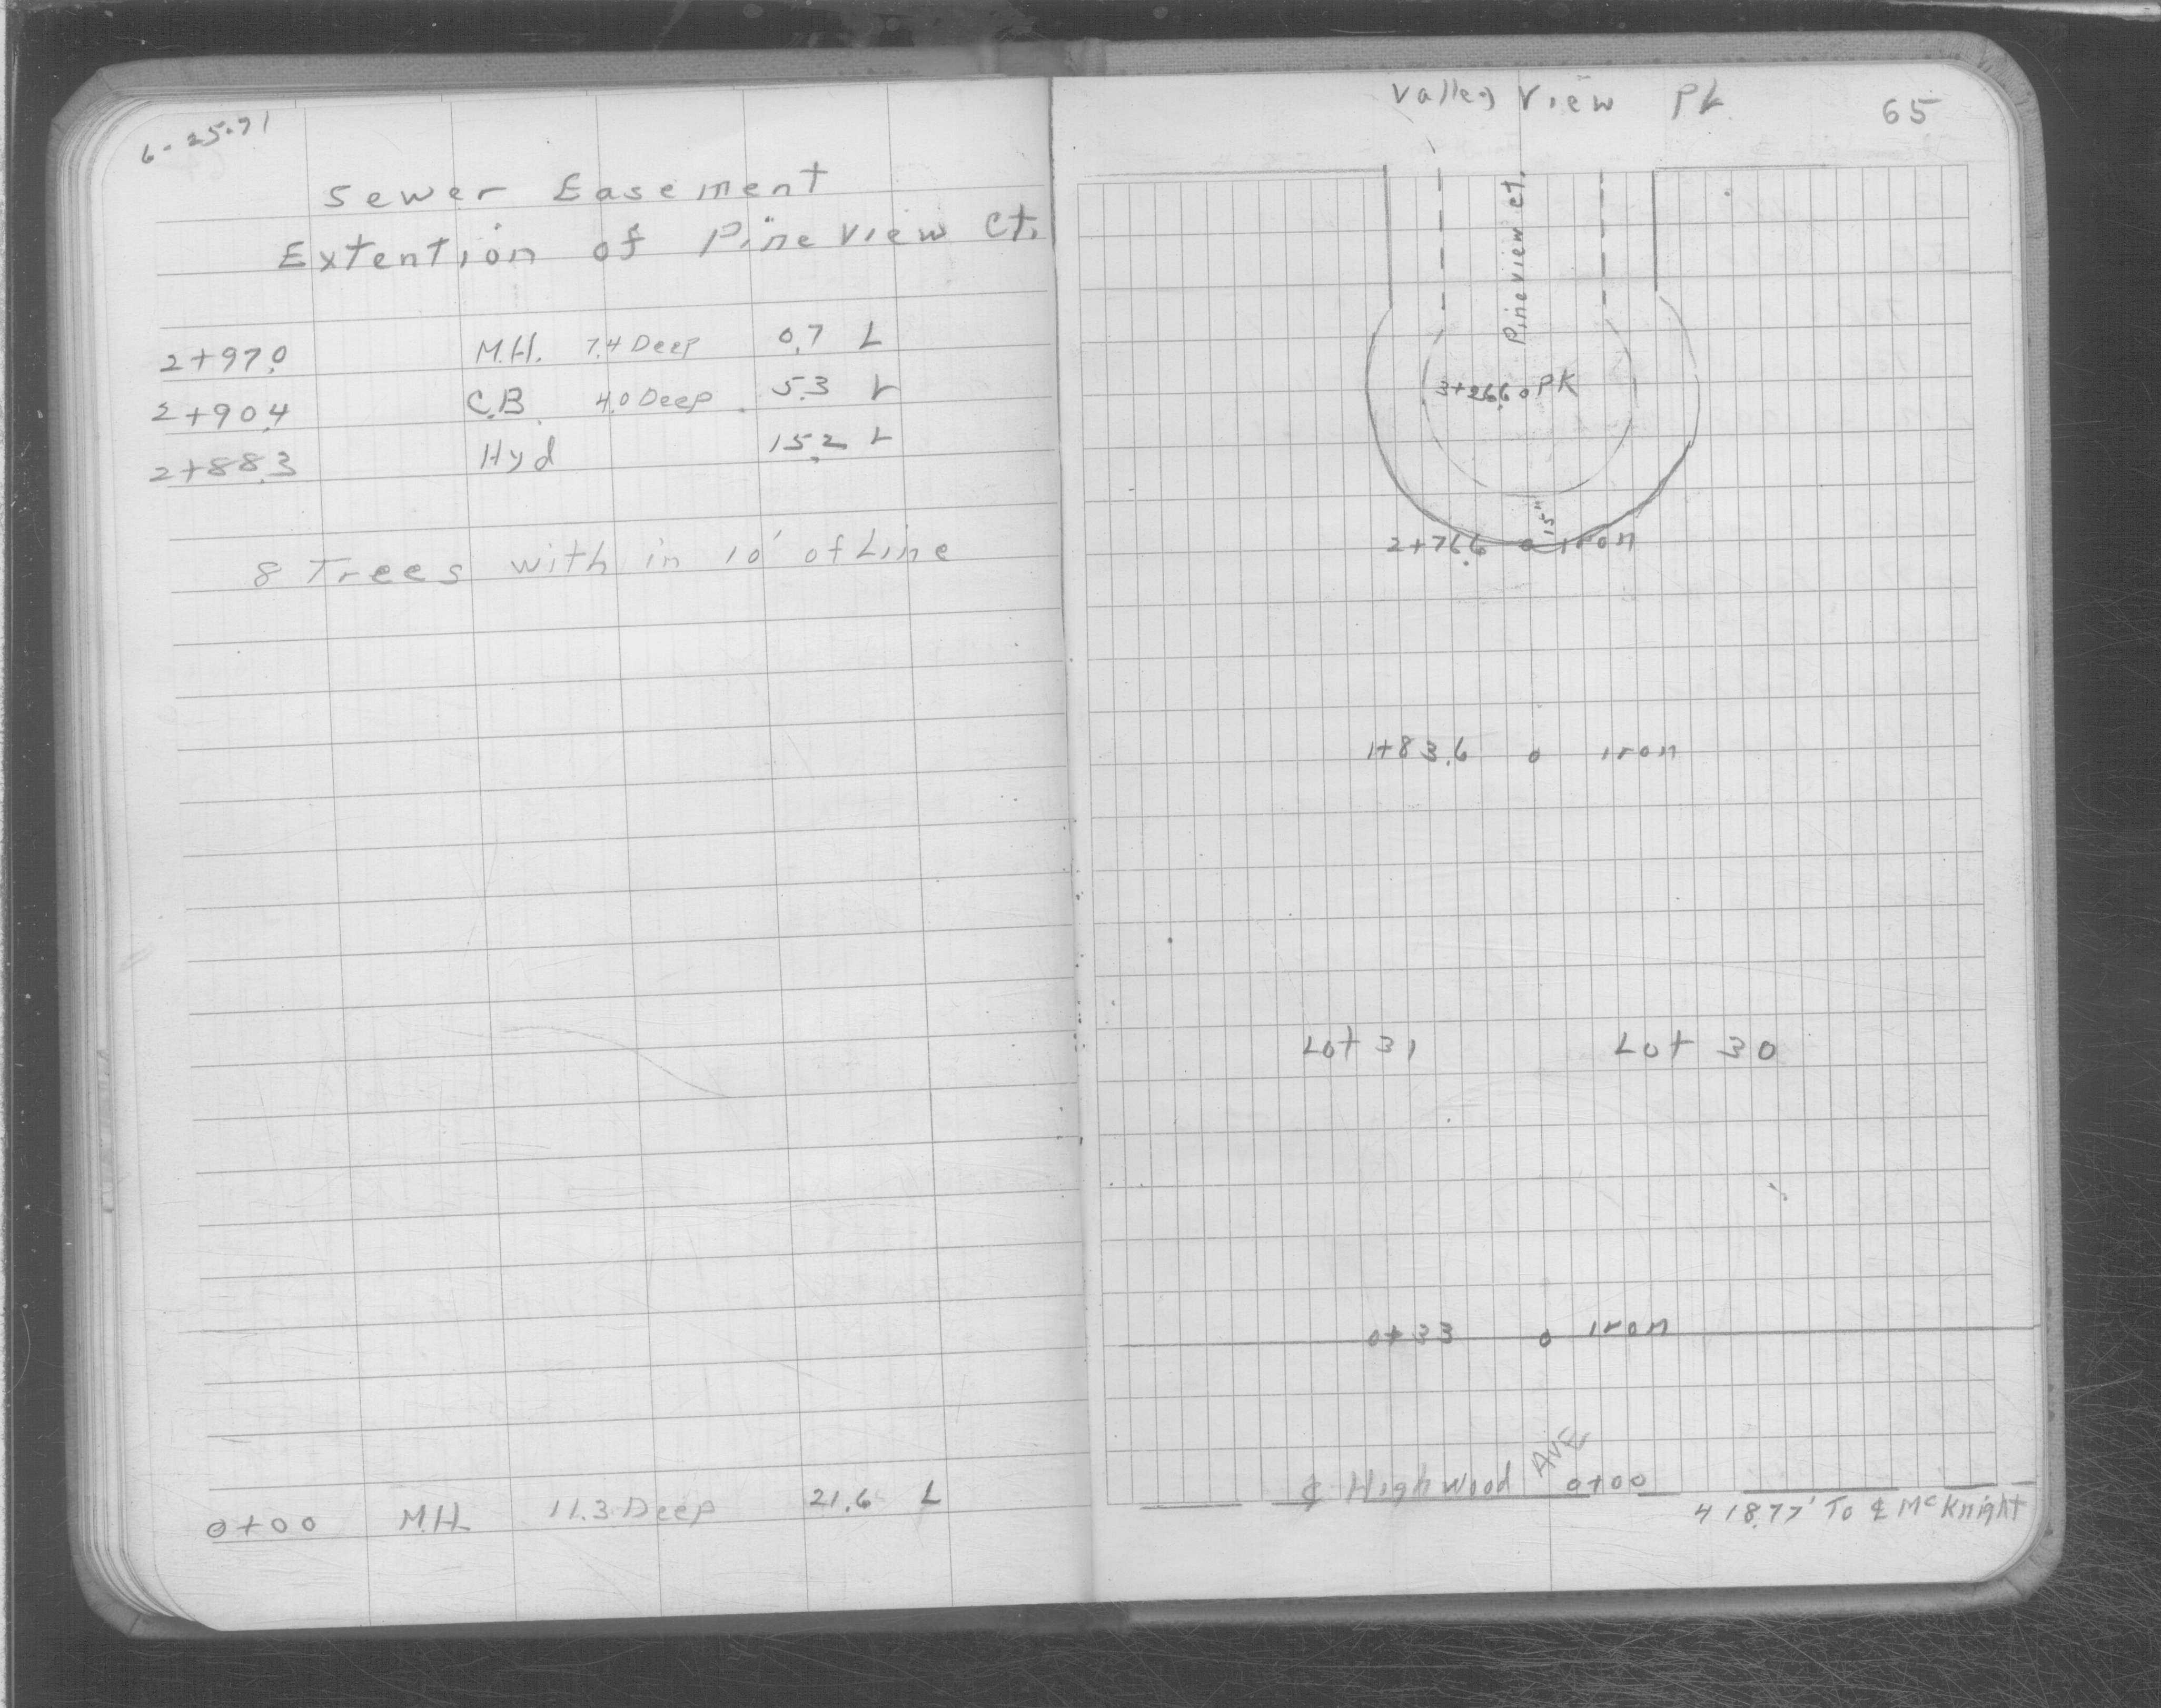 6-25-71
Sewer Easement
Extention of Pine View Ct.
2+97.0 M.H. 7.4 Deep 0.7 L
2+90.4 C.B. 4.0 Deep 5.3 r
2+88.3 Hyd 15.2 L
8 Trees with in 10' of Line
0+00 M.H. 11.3 Deep 21.6 L
Valley View PL
65
Pineview ct.
3+26.6 o PK
15"
2+76.6 o iron
1+83.6 o iron
Lot 31 Lot 30
0+33 o iron
℄ Highwood Ave 0+00
418.77' To ℄ McKnight